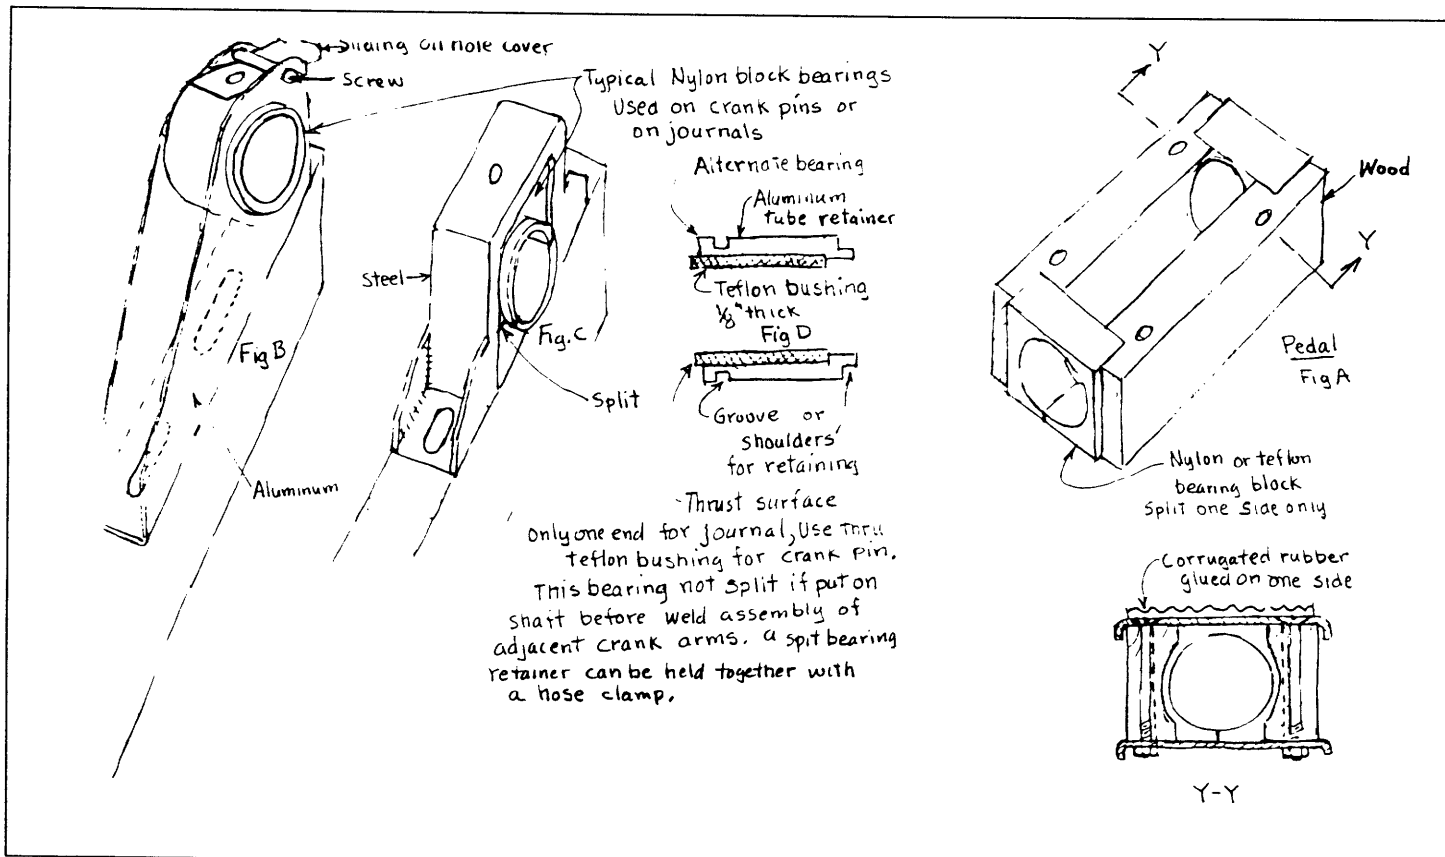 Sliding oil hole cover
Screw
Typical Nylon block bearings
Used on crank pins or
on journals
Alternate bearing
Aluminum
tube retainer
Steel
Teflon bushing
1/8" thick
Fig D
Fig B
Fig. C
Split
Groove or
shoulders
for retaining
Aluminum
Thrust surface
Only one end for journal, Use Thru
teflon bushing for crank pin.
This bearing not split if put on
shaft before weld assembly of
adjacent crank arms. a spit bearing
retainer can be held together with
a hose clamp.
Y
Wood
Y
Pedal
Fig A
Nylon or teflon
bearing block
Split one side only
Corrugated rubber
glued on one side
Y-Y